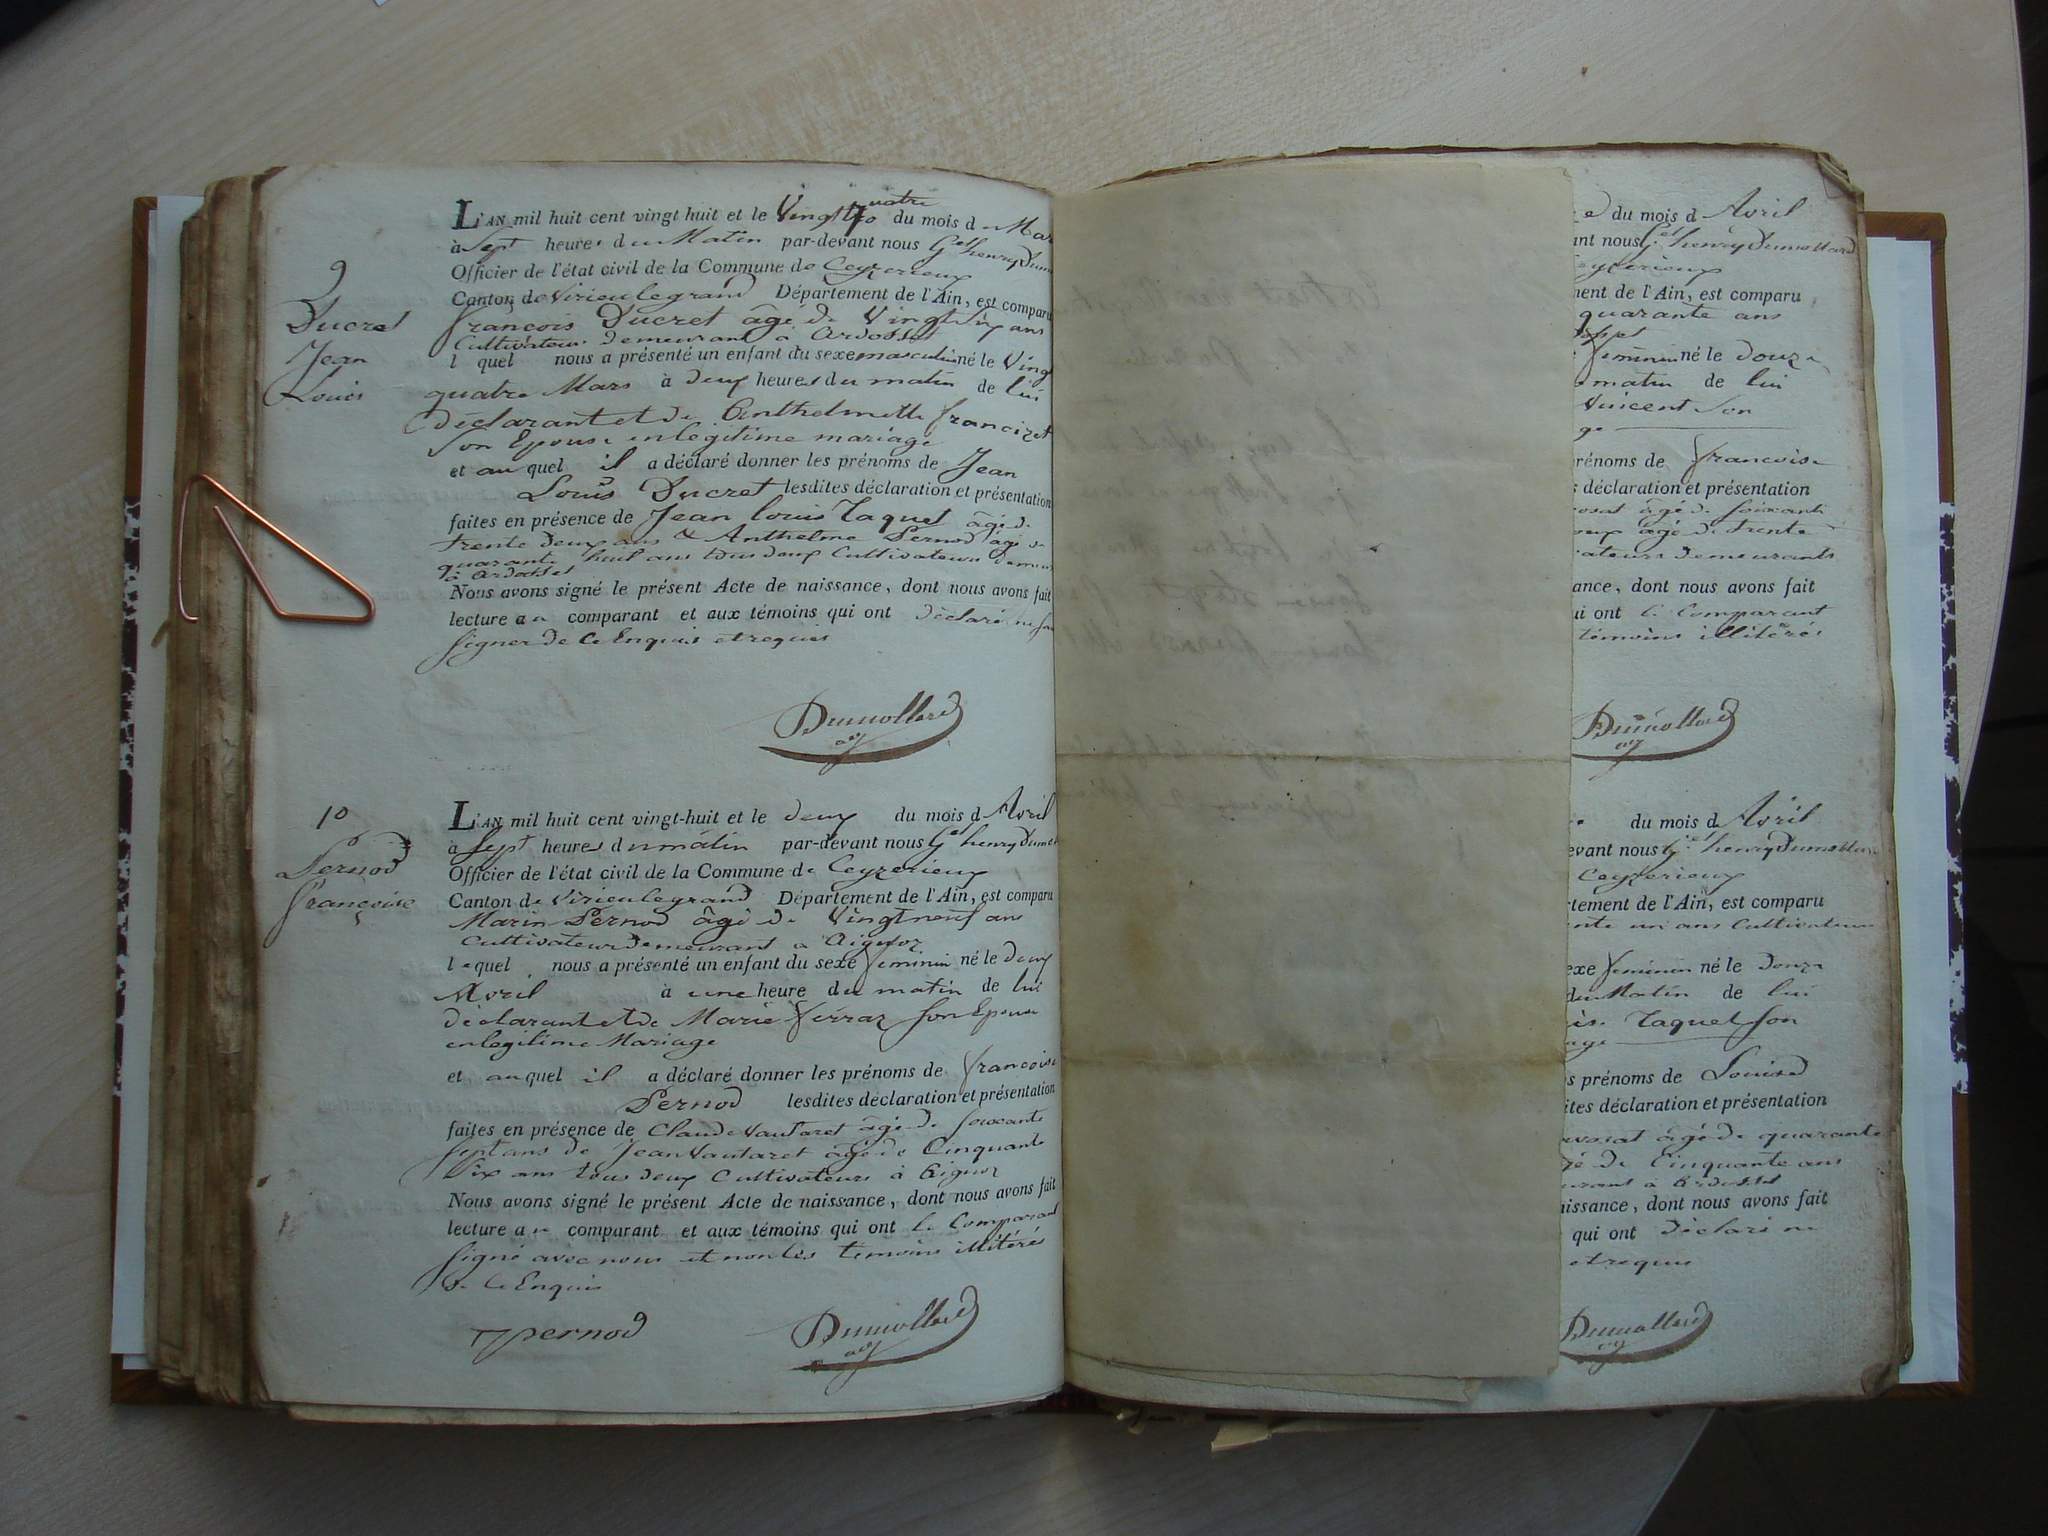 9
Ducret
Jean
Louis
L'AN mil huit cent vingt huit et le Vingt quatre du mois d u Mar
à Sept heures du Matin par-devant nous Gel henry Dum
Officier de l'état civil de la Commune de Ceyzerieux
Canton de Virieulegrand Département de l'Ain, est comparu
françois Ducret âgé de Vingt Six ans
Cultivateur demeurant a Ardosset
l quel nous a présenté un enfant du sexe masculin né le Ving
quatre Mars à deux heures du matin de lui
déclarant et de Anthelmette francizet
Son Epouse en legitime mariage
et au quel il a déclaré donner les prénoms de Jean
Louis Ducret lesdites déclaration et présentation
faites en présence de Jean louis Taquet âgé de
trente deux ans & Anthelme Pernod âgé de
quarante huit ans tous deux Cultivateurs demeur
à Ardosset
Nous avons signé le présent Acte de naissance, dont nous avons fait
lecture au comparant et aux témoins qui ont déclaré ne sav
signer de Ce Enquis et requis
Dumollard
10
Pernod
françoise
L'AN mil huit cent vingt-huit et le deux du mois d Avril
a Sept heures du matin par-devant nous Gel henry Dumol
Officier de l'état civil de la Commune de Ceyzerieux
Canton de Virieulegrand Département de l'Ain, est comparu
Marin Pernod âgé de Vingt neuf ans
Cultivateur demeurant a Aignoz
lequel nous a présenté un enfant du sexe feminin né le deux
Avril à une heure du matin de lui
déclarant et de Marie ferraz son Epouse
en legitime Mariage
et au quel il a déclaré donner les prénoms de francoise
Pernod lesdites déclaration et présentation
faites en présence de Claude Vautaret âgé de soixante
sept ans de Jean Vautaret âgé de Cinquante
Six ans tous deux Cultivateurs à Aignoz
Nous avons signé le présent Acte de naissance, dont nous avons fait
lecture au comparant et aux témoins qui ont le Comparant
signé avec nous et non les temoins illitérés
de Ce Enquis
Pernod Dumollard
du mois d Avril
ant nous Gel henry Dumollard
Ceyzerieux
ent de l'Ain, est comparu
quarante ans
feminin né le douze
matin de lui
Vincent Son
ge
rénoms de francoise
déclaration et présentation
âgé de soixante
âgé de trente
ateurs demeurants
ance, dont nous avons fait
ui ont le Comparant
témoins illitérés
Dumollard
du mois d Avril
evant nous Gel henry Dumollard
Ceyzerieux
rtement de l'Ain, est comparu
ente un ans Cultivateur
exe feminin né le Douze
du Matin de lui
Taquet son
age
s prénoms de Louise
ites déclaration et présentation
âgé de quarante
é de Cinquante ans
urant à Ardosset
aissance, dont nous avons fait
qui ont déclaré ne
et requis
Dumollard